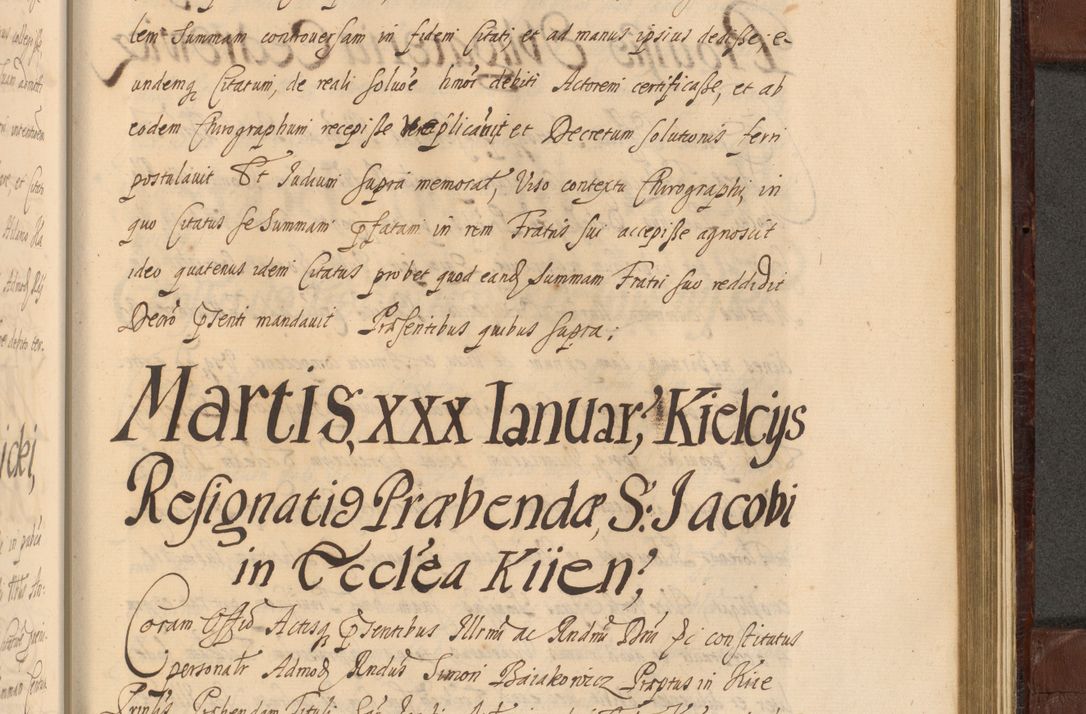 lem Summam controversam in fidem Citati et ad manus ipsius dedisse, e-
undemq Citatum, de reali solue hmoi debiti Actorem certificasse, et ab
eodem Chirographum recepisse et Decretum solutionis ferri
postulavit Et Judium supra memorat, Viso contextu Chirographi, in
quo Citatus se Summam pfatam in rem Fratris sui accepisse agnoscit
ideo quatenus idem Citatus probet quod eand Summam Fratri suo reddidit
Decro psenti mandavit Præsentibus quibus supra.
Martis, xxx Ianuar, Kielcijs
Resignatio Præbendæ, S: Jacobi
in Eccl'ea Kiien,
Coram Offio Actisq psentibus Illrmi ac Rndmi Dni pi constitutus
personalr Admod Rndus Simon Baiakowicz Præptus in Kiie
Præbendam Tituli